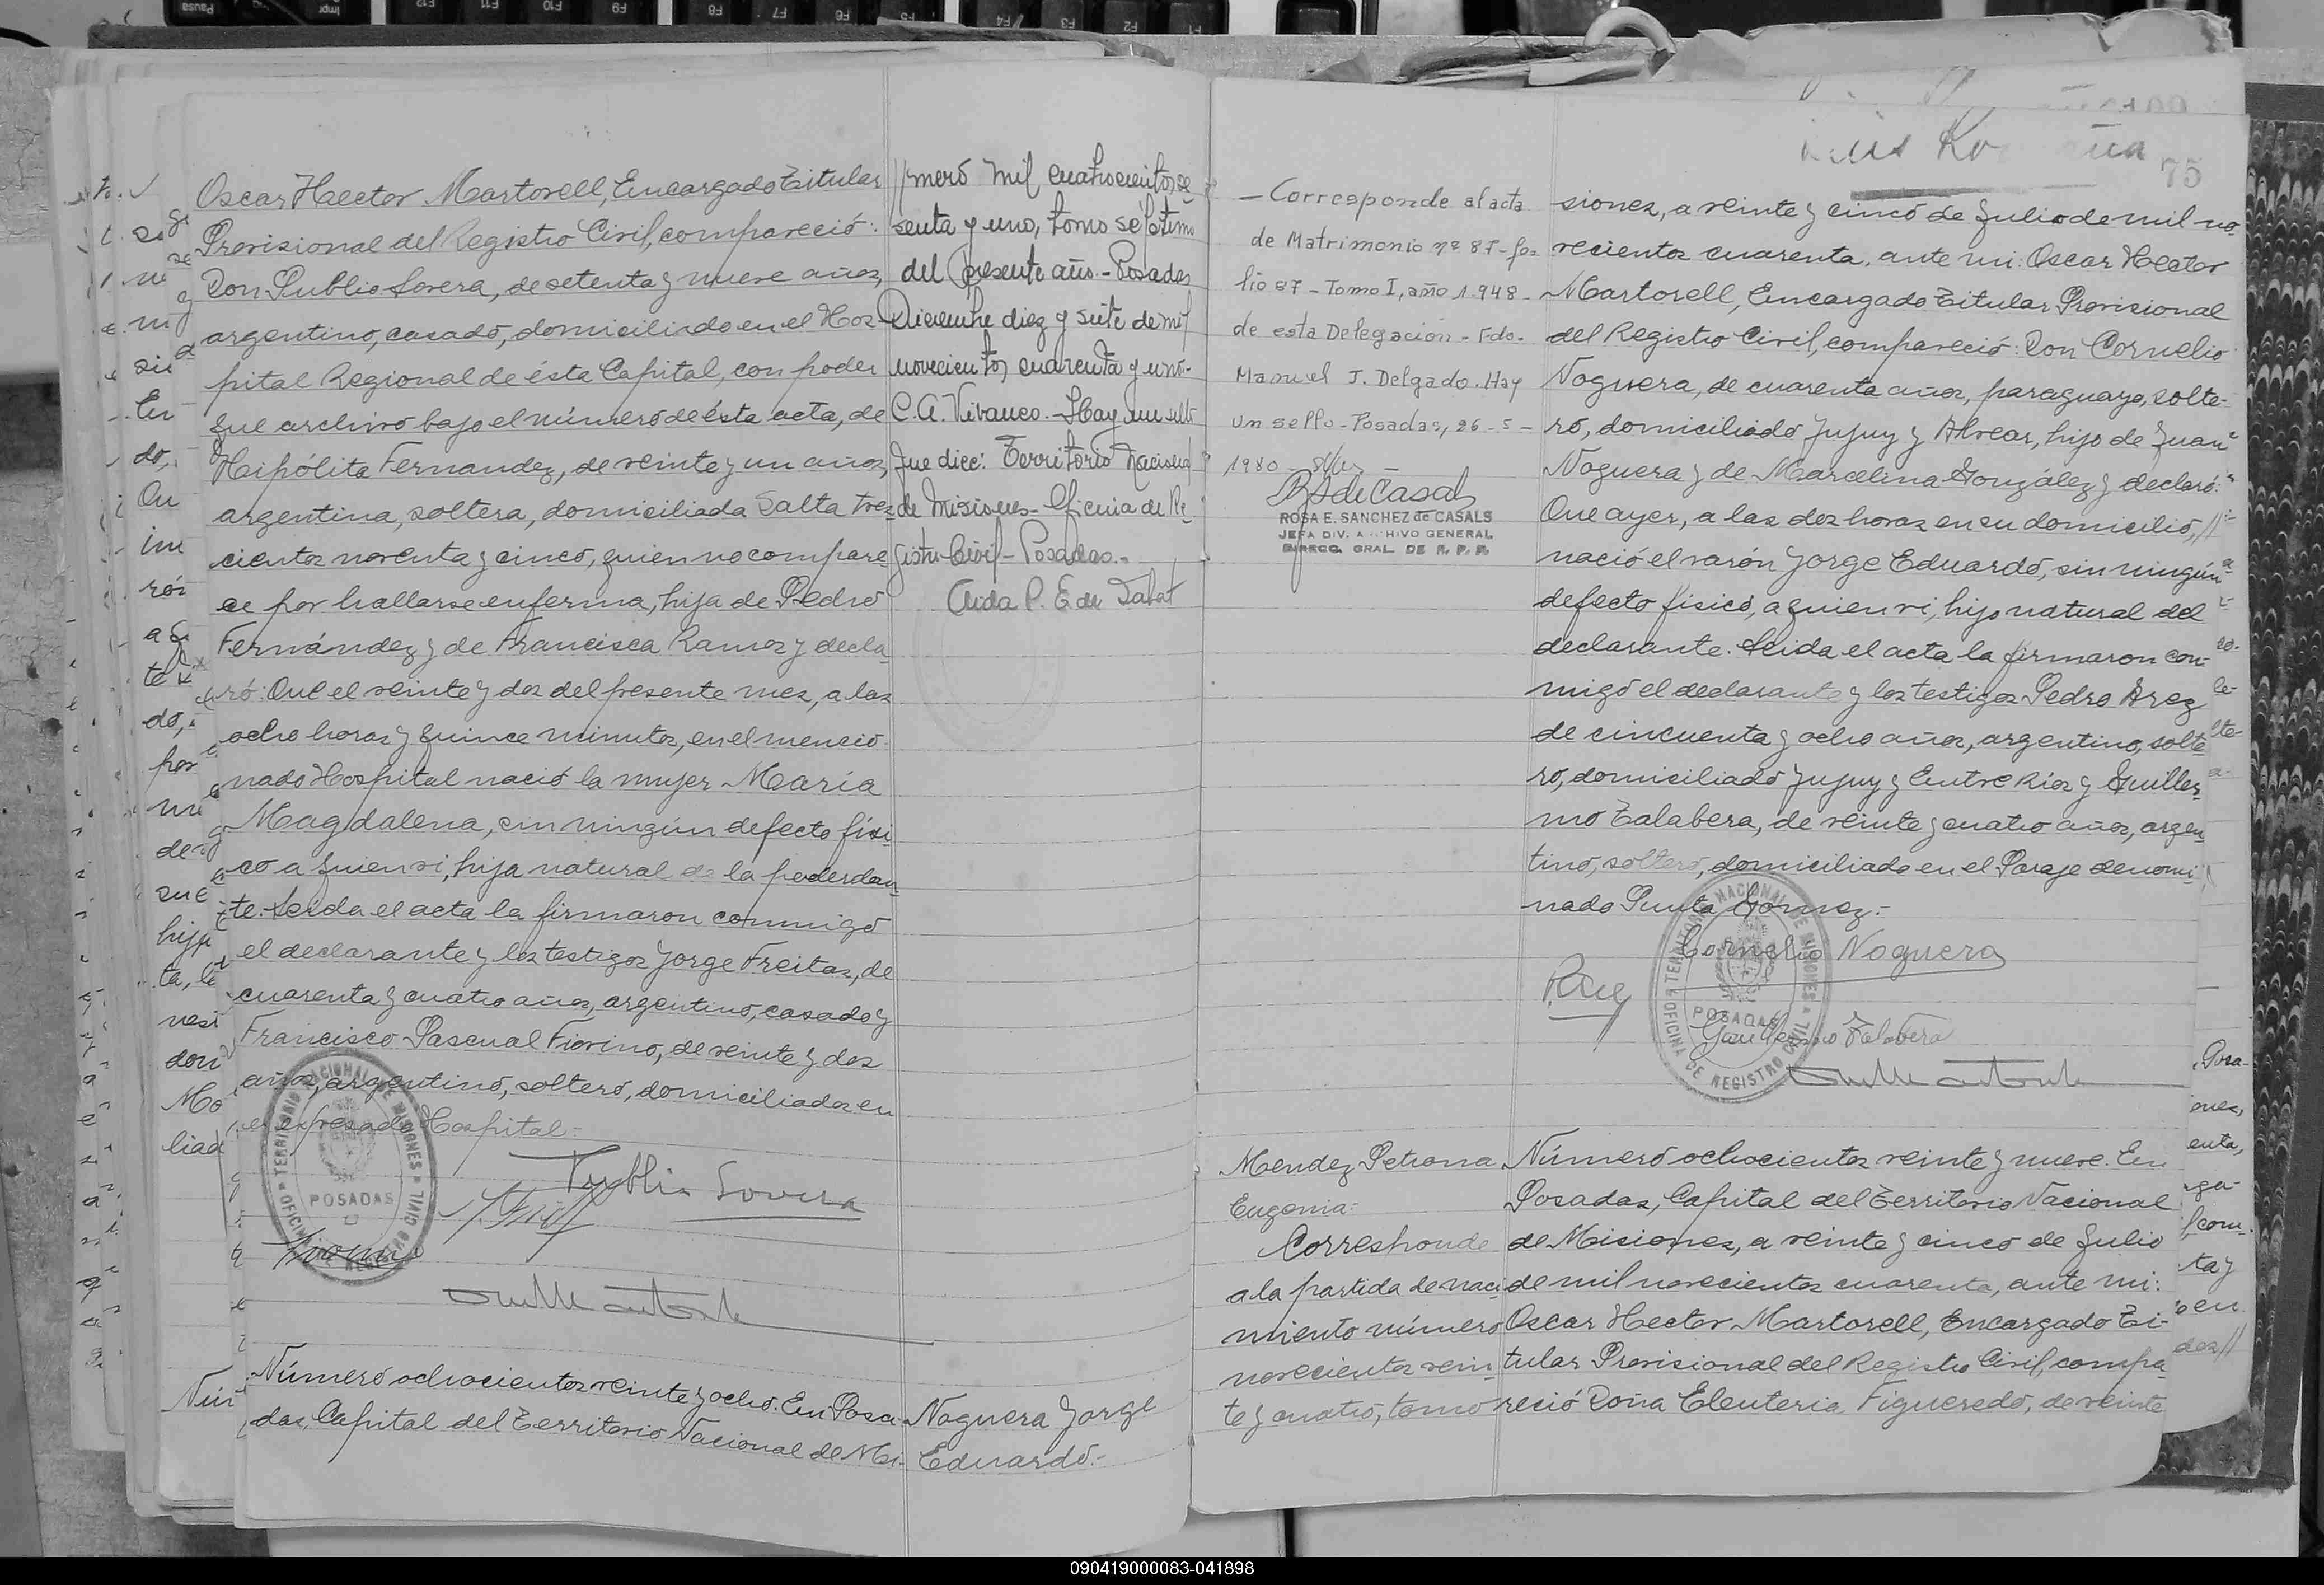 Oscar Hector Martorell, Encargado Titular
Provisional del Registro Civil, compareció:
Don Publio Lovera, de setenta y nueve años,
argentino, casado, domiciliado en el Hos-
pital Regional de ésta Capital, con poder
que archivo bajo el número de ésta acta, de
Hipólita Fernandez, de veinte y un años,
argentina, soltera, domiciliada Salta tres-
cientos noventa y cinco, quien no compare
ce por hallarse enferma, hija de Pedro
Fernández y de Francisca Ramos y decla-
ró: Que el veinte y dos del presente mes, a las
ocho horas y quince minutos, en el mencio-
nado Hospital nació la mujer María
Magdalena, sin ningún defecto físi-
co a quien vi, hija natural de la poderdan-
te. Leida el acta la firmaron conmigo
el declarante y los testigos Jorge Freitas, de
cuarenta y cuatro años, argentino, casado y
Francisco Pascual Fiorino, de veinte y dos
años, argentino, soltero, domiciliados en
el expresado Hospital.-
Publio Lovera
TERRITORIO NACIONAL DE MISIONES
OFICINA DE REGISTRO CIVIL
POSADAS
Número ochocientos veinte y ocho. En Posa-
das, Capital del Territorio Nacional de Mi-
//mero mil cuatrocientos se-
senta y uno, tomo séptimo
del presente año.- Posadas
Diciembre diez y siete de mil
novecientos cuarenta y uno.-
C. A. Vivanco.- Hay un sello
que dice: Territorio Nacional
de Misiones- Oficina de Re-
gistro Civil- Posadas.-
Aida P. E. de
Noguera Jorge
Eduardo.-
75
- Corresponde al acta
de Matrimonio nº 87- fo-
lio 87- Tomo I, año 1.948-
de esta Delegacion- Fdo.
Manuel J. Delgado. Hay
un sello- Posadas, 26-5-
1980-
RS de Casals
ROSA E. SANCHEZ de CASALS
JEFA DIV. ARCHIVO GENERAL
DIRECC. GRAL DE R. P. P.
siones, a veinte y cinco de Julio de mil no-
vecientos cuarenta, ante mi: Oscar Hector
Martorell, Encargado Titular Provisional
del Registro Civil, compareció: Don Cornelio
Noguera, de cuarenta años, paraguayo, solte-
ro, domiciliado Jujuy y Alvear, hijo de Juan
Noguera y de Marcelina González y declaró:
Que ayer, a las dos horas en su domicilio, //
nació el varón Jorge Eduardo, sin ningún
defecto físico, a quien vi, hijo natural del
declarante. Leida el acta la firmaron con-
migo el declarante y los testigos Pedro Arez
de cincuenta y ocho años, argentino, solte-
ro, domiciliado Jujuy y Entre Ríos y Guiller-
mo Talabera, de veinte y cuatro años, argen-
tino, soltero, domiciliado en el Paraje denomi-
nado Punta Gomez.-
Cornelio Noguera
Guillermo Talabera
TERRITORIO NACIONAL DE MISIONES
OFICINA DE REGISTRO CIVIL
POSADAS
Mendez Petrona
Eugenia.
Corresponde
a la partida de naci-
miento número
novecientos vein-
te y cuatro, tomo
Número ochocientos veinte y nueve. En
Posadas, Capital del Territorio Nacional
de Misiones, a veinte y cinco de Julio
de mil novecientos cuarenta, ante mi:
Oscar Hector Martorell, Encargado Ti-
tular Provisional del Registro Civil, compa-
reció Doña Eleuteria Figueredo, de veinte
090419000083-041898